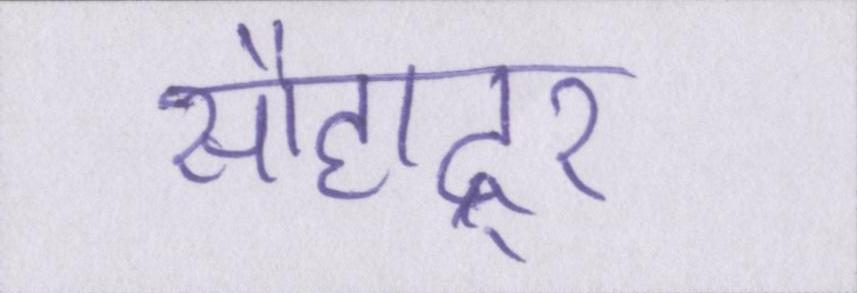 सौहाद्र्र